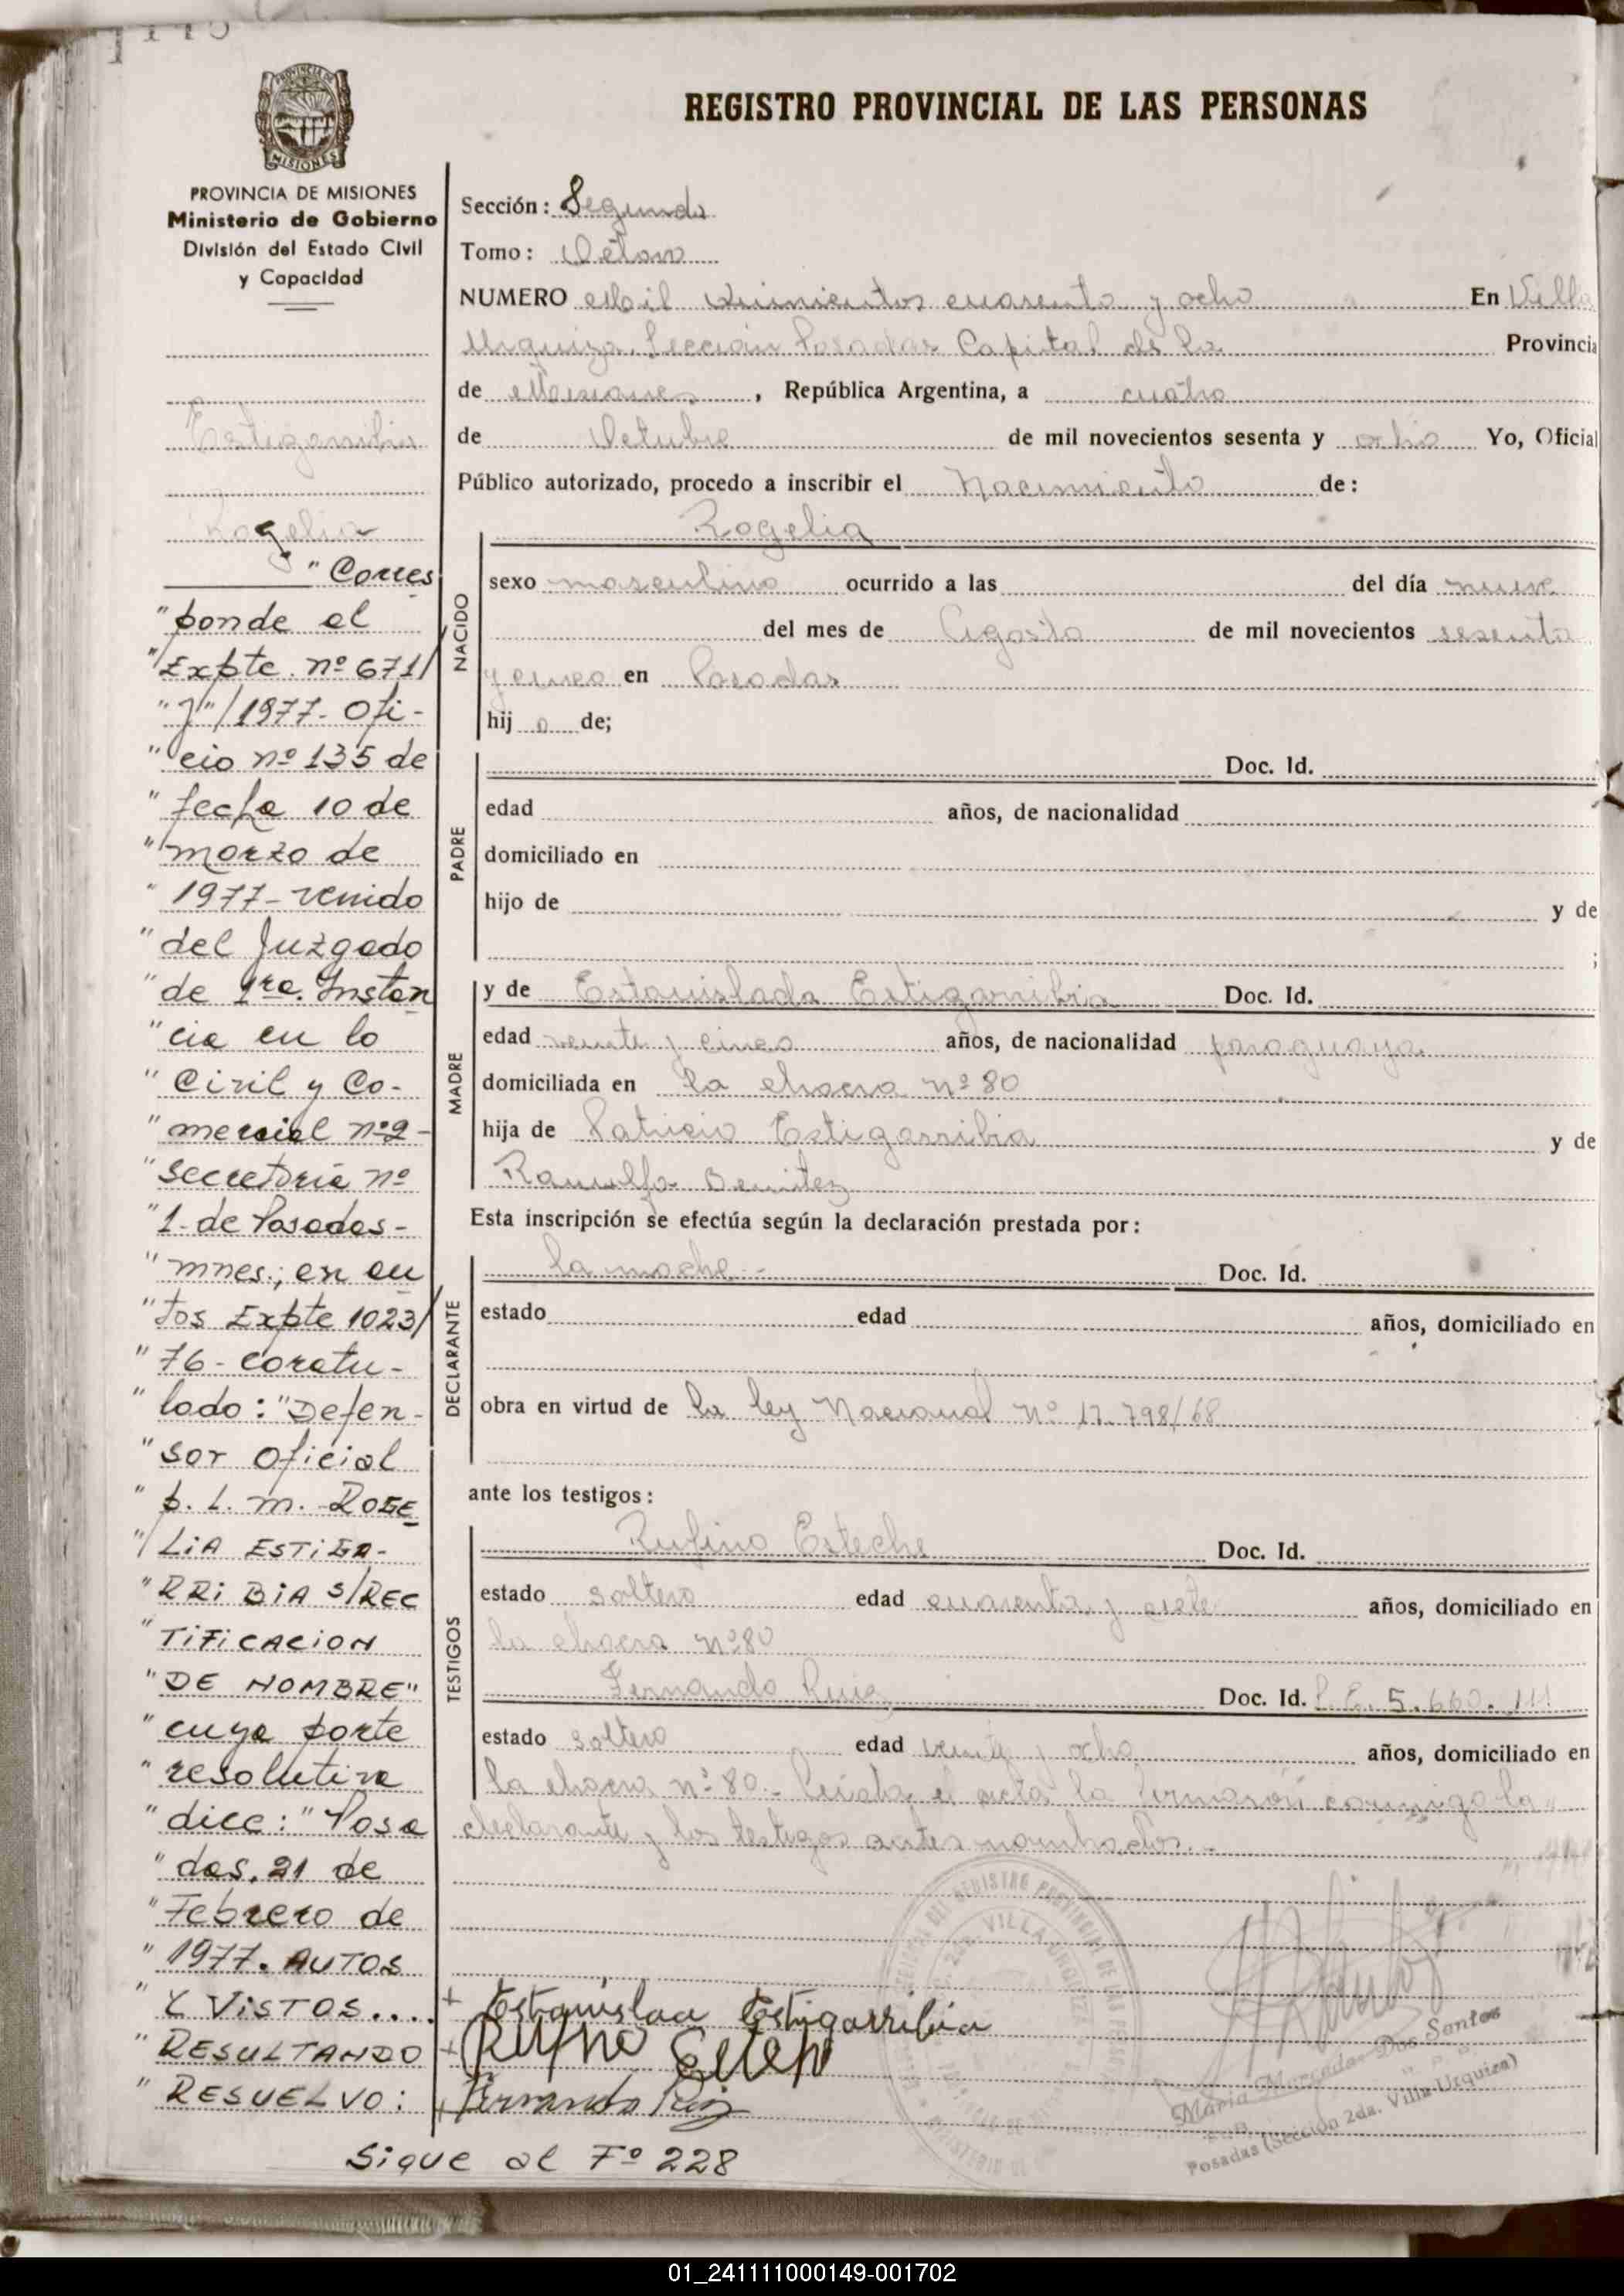 PROVINCIA DE
MISIONES
PROVINCIA DE MISIONES
Ministerio de Gobierno
División del Estado Civil
y Capacidad
Estigarribia
Rogelia
" Corres
" ponde al
" Expte. nº 671/
" J"/1977- Ofi-
" cio nº 135 de
" fecha 10 de
" marzo de
" 1977- venido
" del Juzgado
" de 1ra. Instan
" cia en lo
" Civil y Co-
" mercial nº 2-
" secretoria nº
" 1- de Posadas-
" mnes.; en au
" tos Expte 1023/
" 76- caratu-
" lado: "Defen-
" sor Oficial
" p. L. m. ROGE
" LIA ESTIGA-
" RRI BIA S/REC
" TIFICACION
" DE NOMBRE"
" cuya parte
" resolutiva
" dice: "Posa
" das, 21 de
" Febrero de
" 1977. AUTOS
" Y VISTOS....
" RESULTANDO
" RESUELVO:
Sigue al Fº 228
REGISTRO PROVINCIAL DE LAS PERSONAS
Sección: Segunda
Tomo: Octavo
NUMERO Mil Quinientos cuarenta y ocho En Villa
Urquiza, Sección Posadas Capital de la Provincia
de Misiones, República Argentina, a cuatro
de Octubre de mil novecientos sesenta y ocho Yo, Oficial
Público autorizado, procedo a inscribir el Nacimiento de:
NACIDO
Rogelia
sexo masculino ocurrido a las del día nueve
del mes de Agosto de mil novecientos sesenta
y cinco en Posadas
hij o de;
PADRE
Doc. Id.
edad años, de nacionalidad
domiciliado en
hijo de y de
;
MADRE
y de Estanislada Estigarribia Doc. Id.
edad veinte y cinco años, de nacionalidad paraguaya
domiciliada en la chacra nº 80
hija de Patricio Estigarribia y de
Ranulfa Benitez
Esta inscripción se efectúa según la declaración prestada por:
DECLARANTE
la madre - Doc. Id.
estado edad años, domiciliado en
obra en virtud de la ley Nacional Nº 17.798/68
ante los testigos:
TESTIGOS
Rufino Esteche Doc. Id.
estado soltero edad cuarenta y siete años, domiciliado en
la chacra nº 80
Fernando Ruiz Doc. Id. 5.660.111
estado soltero edad veinte y ocho años, domiciliado en
la chacra nº 80- el acta la conmigo la
declarante y los testigos antes nombrados.-
+ Estanislaa Estigarribia
+ Rufino
+ Fernando Ruiz
REGISTRO PROVINCIAL DE LAS PERSONAS
VILLA URQUIZA
Maria Mercedes Dos Santos
Posadas (Sección 2da. Villa Urquiza)
01_241111000149-001702